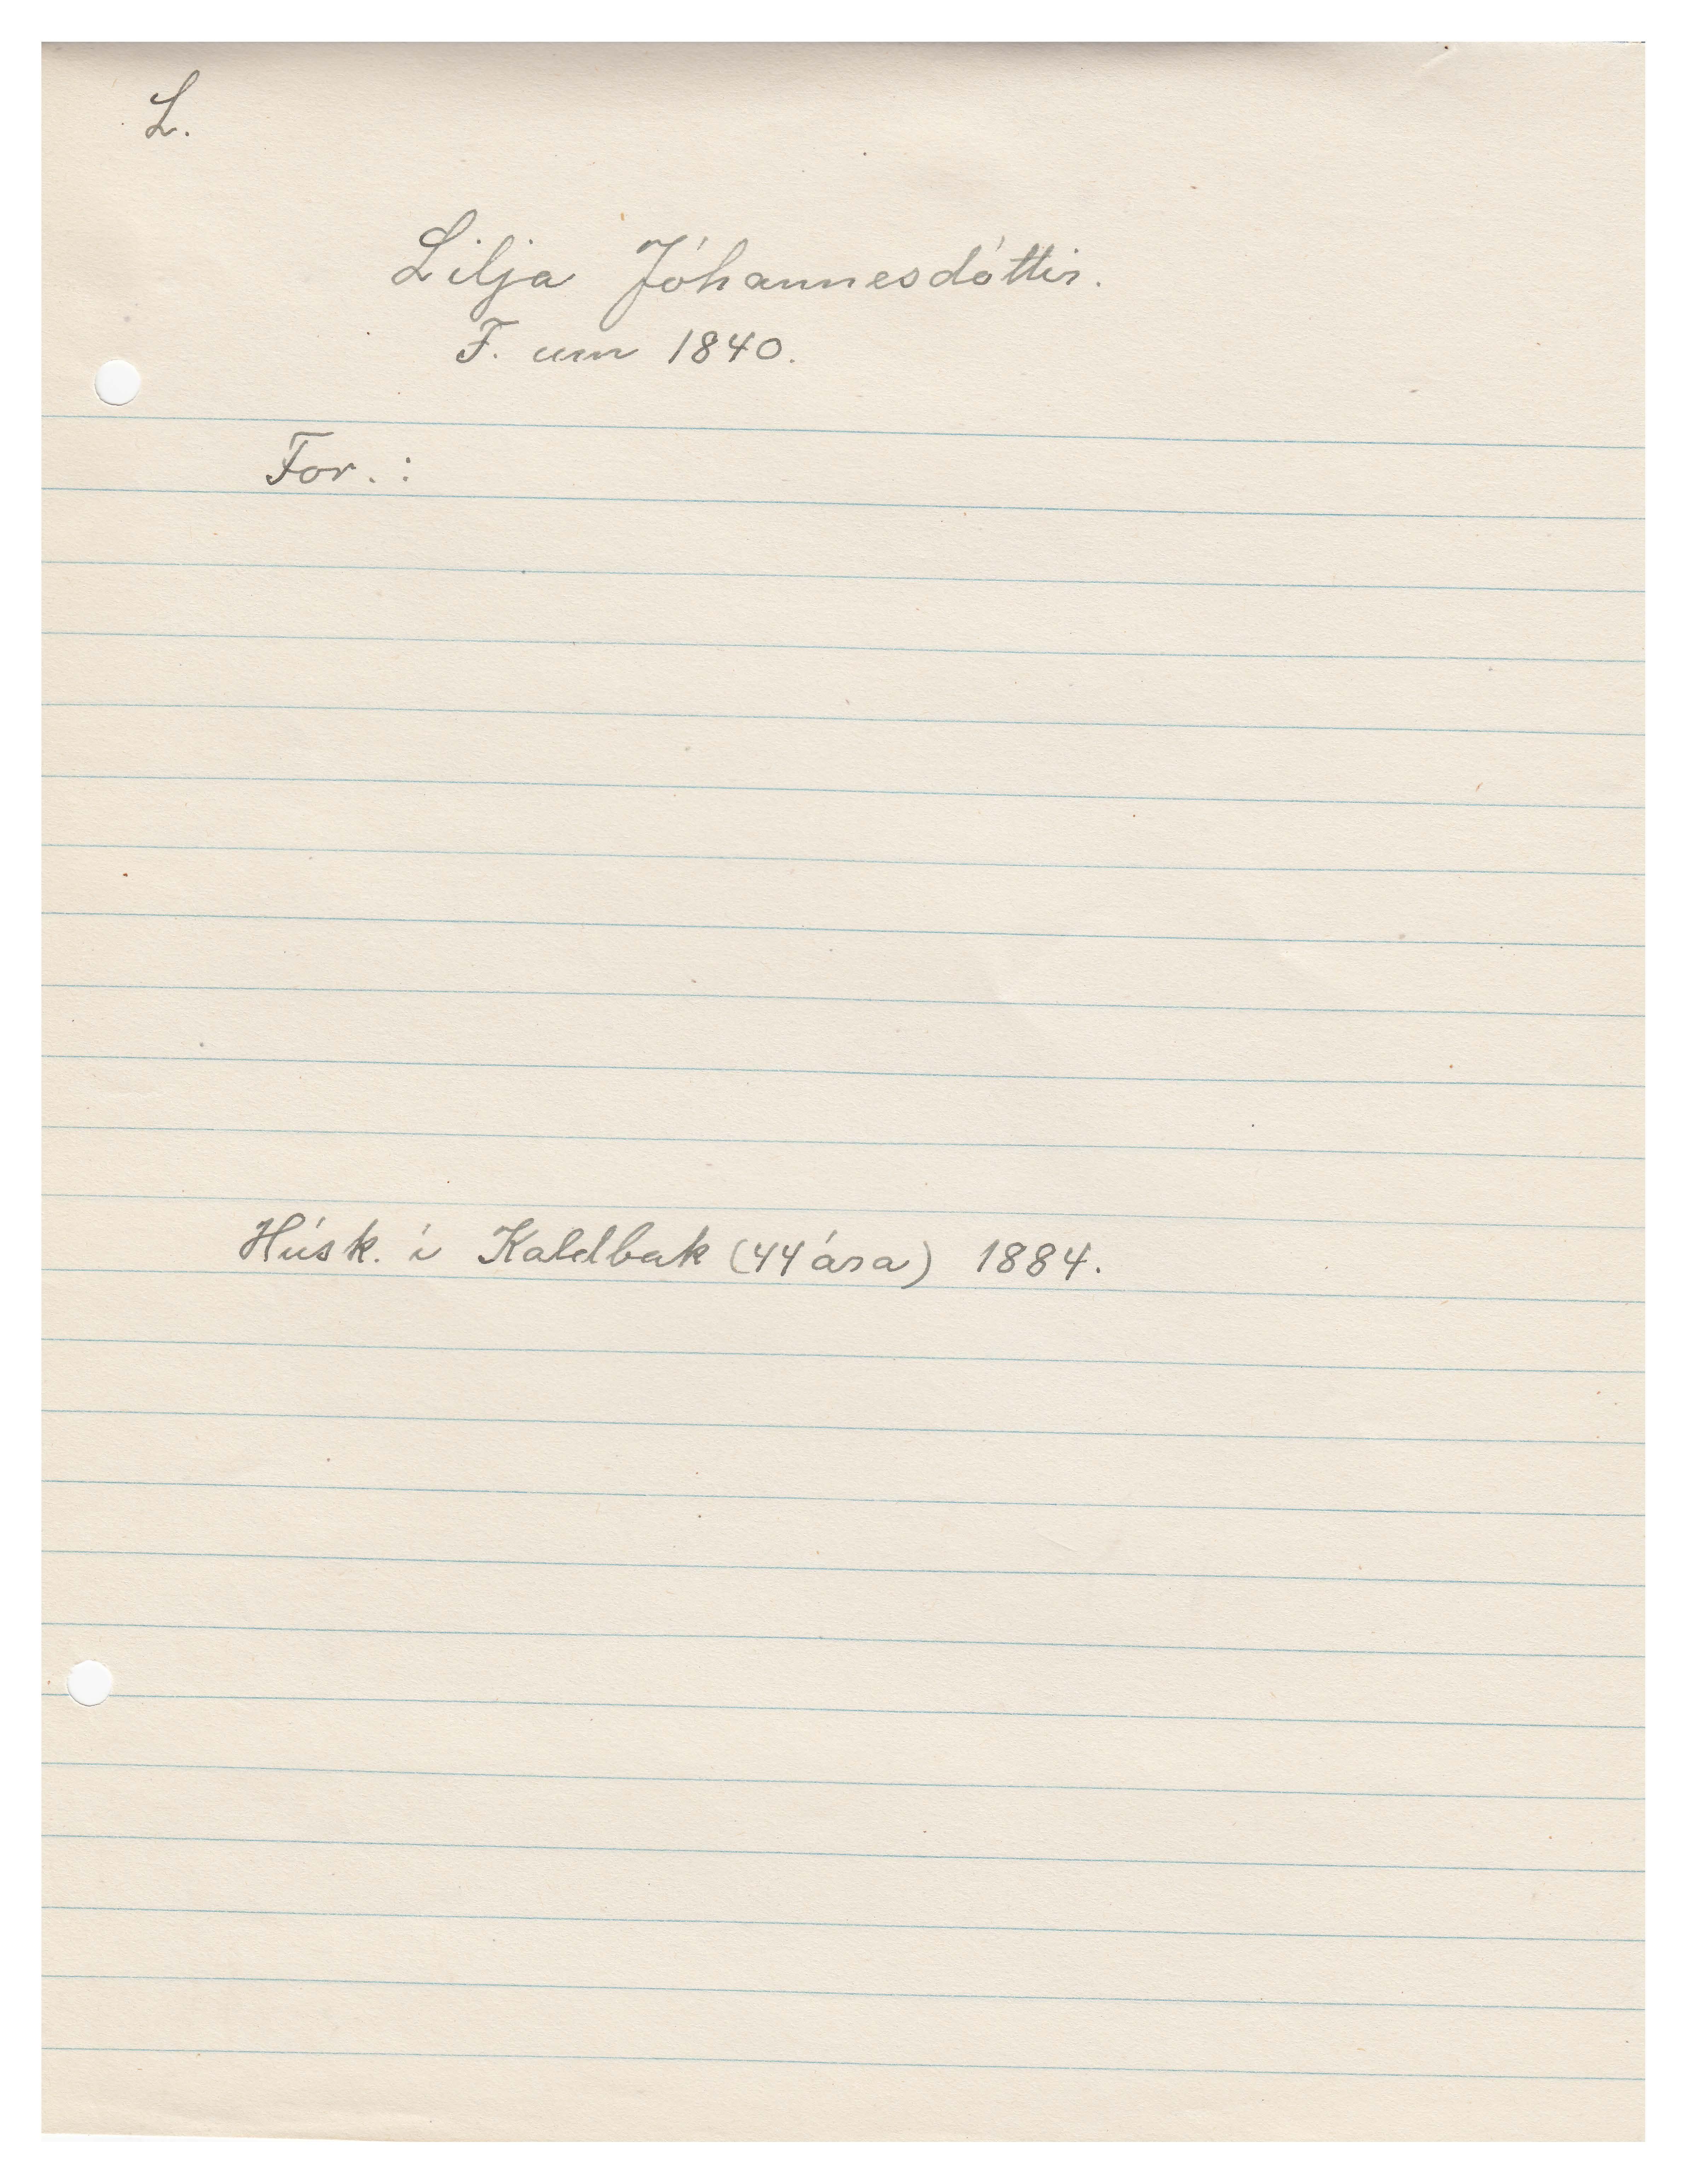 L.
Lilja Jóhannesdóttir.
F. um 1840.
For. :
Húsk. í Kaldbak (44 ára) 1884.